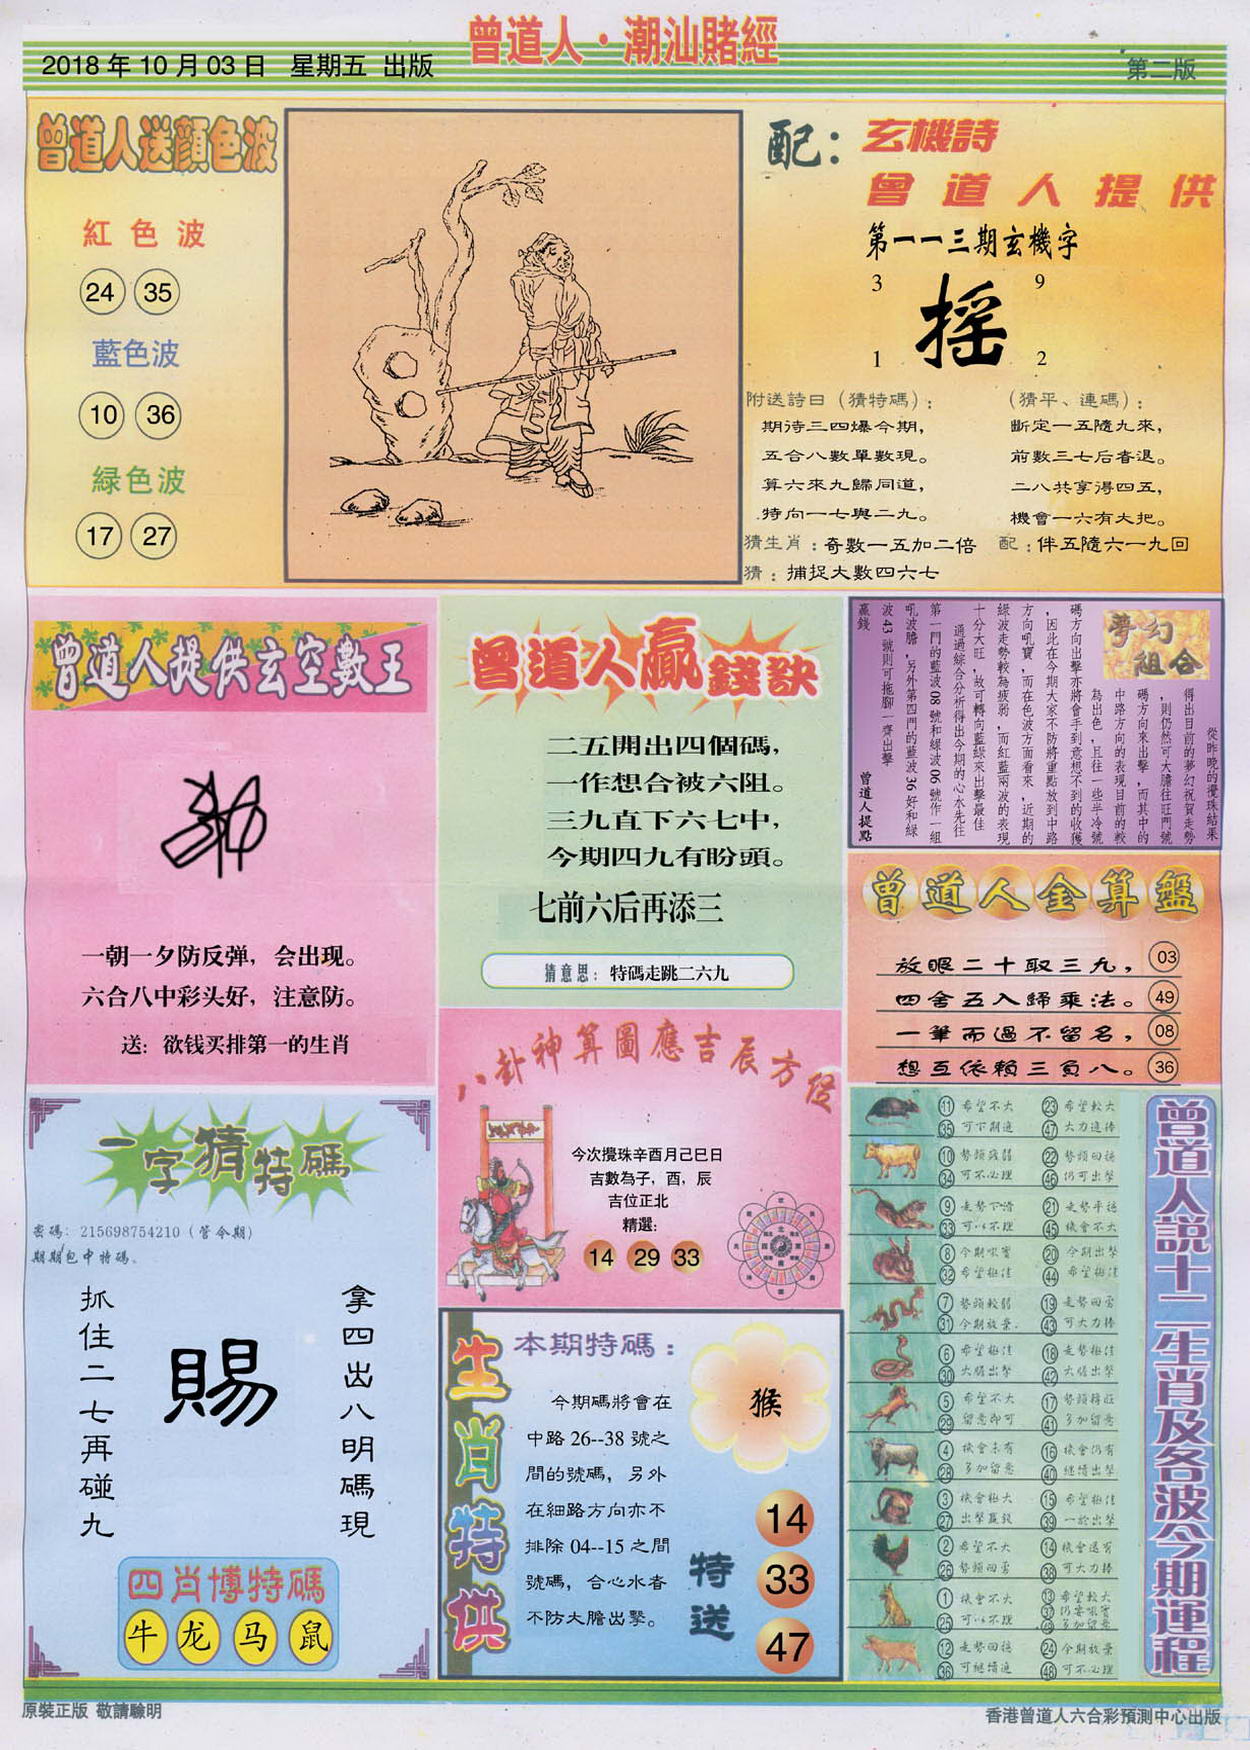 曾道人·潮汕賭經
2018 年 10 月 03 日 星期五 出版
第二版
曾道人送顔色波
紅色波
24 35
藍色波
10 36
緑色波
17 27
配：玄機詩
曾道人提供
第一一三期玄機字
3 9
摇
1 2
附送詩曰（猜特碼）：
期待三四爆今期，
五合八數單數現。
算六來九歸同道，
特向一七與二九。
（猜平、連碼）：
斷定一五隨九來，
前數三七后者退。
二八共享得四五，
機會一六有大把。
猜生肖：奇數一五加二倍 配：伴五隨六一九回
猜：捕捉大數四六七
曾道人提供玄空數王
一朝一夕防反弹，会出现。
六合八中彩头好，注意防。
送：欲钱买排第一的生肖
曾道人贏錢訣
二五開出四個碼，
一作想合被六阻。
三九直下六七中，
今期四九有盼頭。
七前六后再添三
猜意思：特碼走跳二六九
夢幻組合
從昨晚的攪珠結果
得出目前的夢幻祝賀走勢
，則仍然可大膽往旺門號
碼方向來出擊，而其中的
中路方向的表現目前的較
為出色，且往一些半冷號
碼方向出擊亦將會手到意想不到的收獲
，因此在今期大家不防將重點放到中路
方向吼寶，而在色波方面看來，近期的
綠波走勢較為疲弱，而紅藍兩波的表現
十分大旺，故可轉向藍綠來出擊最佳
通過綜合分析得出今期的心水先往
第一門的藍波 08 號和綠波 06 號作一組
吼波膽，另外第四門的藍波 36 好和綠
波 43 號則可拖腳一齊出擊
贏錢
曾道人提點
曾道人金算盤
放眼二十取三九， 03
四舍五入歸乘法。 49
一筆而過不留名， 08
想互依賴三負八。 36
八卦神算圖應吉辰方位
今次攪珠辛酉月己巳日
吉數為子，酉，辰
吉位正北
精選:
14 29 33
一字猜特碼
密碼：215698754210（管今期）
期期包中特碼。
抓住二七再碰九
賜
拿四出八明碼現
四肖博特碼
牛 龙 马 鼠
生肖特供
本期特碼：
今期碼將會在
中路 26--38 號之
間的號碼，另外
在細路方向亦不
排除 04--15 之間
號碼，合心水者
不防大膽出擊。
猴
特送
14
33
47
曾道人說十二生肖及各波今期運程
11 希望不大 23 希望較大
35 可下期進 47 大力進捧
10 勢頭疲弱 22 勢頭回穩
34 可不心理 46 仍可出擊
9 走勢下滑 21 走勢平穩
33 可以不理 45 機會不大
8 今期吼寶 20 今期出擊
32 希望極佳 44 希望極佳
7 勢頭較弱 19 走勢回雲
31 今期放棄. 43 可大力捧
6 希望極佳 18 走勢極佳
30 大膽出擊 42 大膽出擊
5 希望不大 17 勢頭轉旺
29 留意即可 41 多加留意
4 機會未有 16 機會仍有
28 多加留意 40 繼續出擊
3 機會極大 15 希望極佳
27 出擊贏錢 39 一於出擊
2 希望不大 14 機會還有
26 勢頭回雲 38 可大力捧
1 機會不大 13 希望較大
25 可以不理 37 仍要吼實
49 多加留意
12 走勢回穩 24 今期放棄
36 可繼續追 48 可不心理
原裝正版 敬請驗明
香港曾道人六合彩預測中心出版